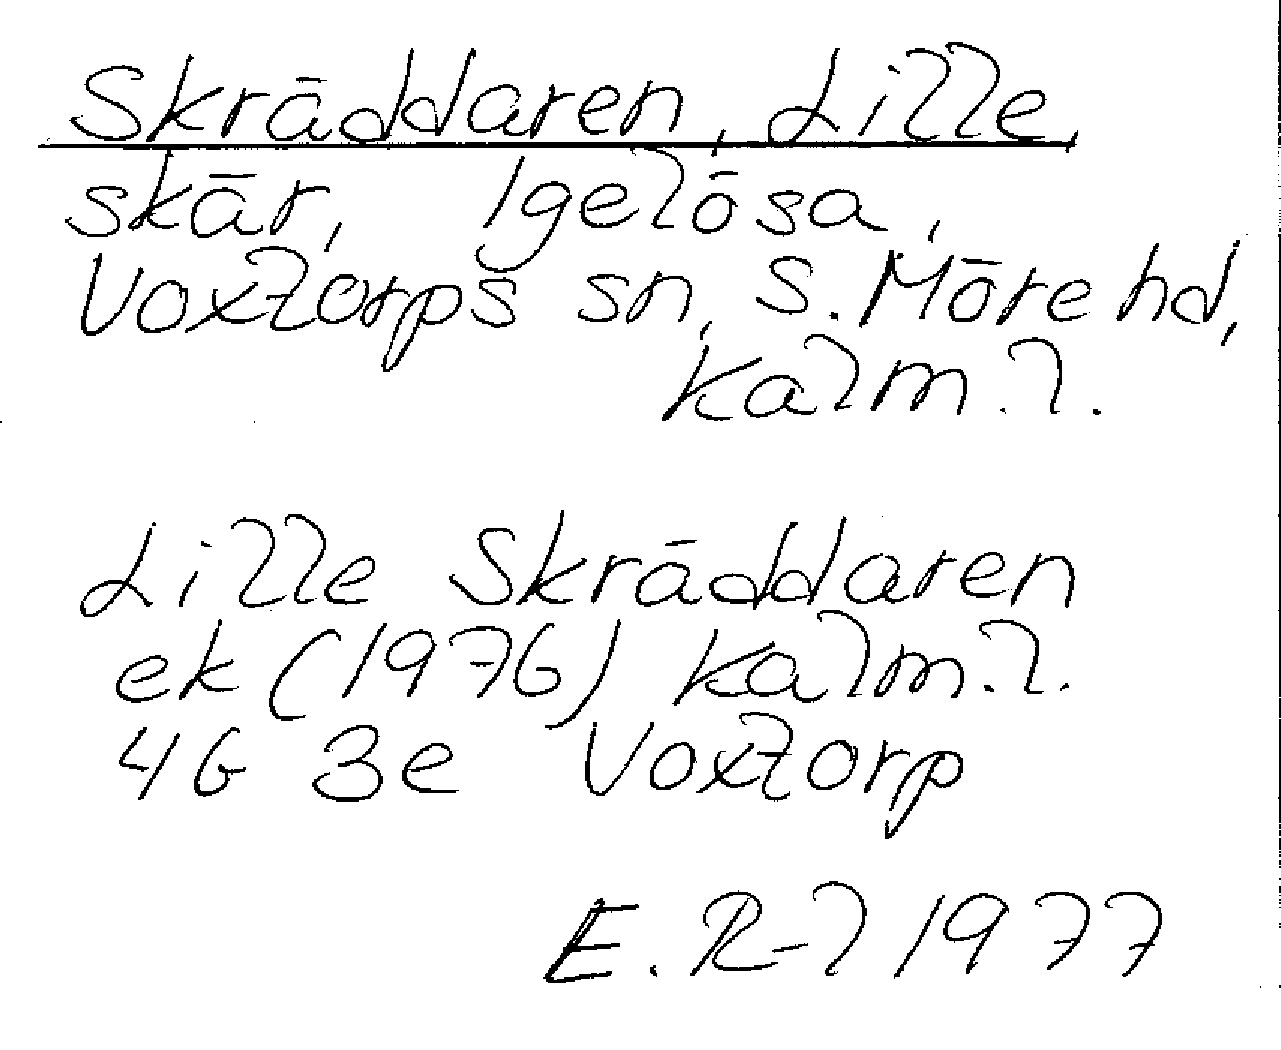 Skräddaren, Lille,
skär, Igelösa,
Voxtorps sn, S. Möre hd,
Kalm.l.
Lille Skräddaren
ek (1976) Kalm.l.
4G 3e Voxtorp
E. R-l 1977